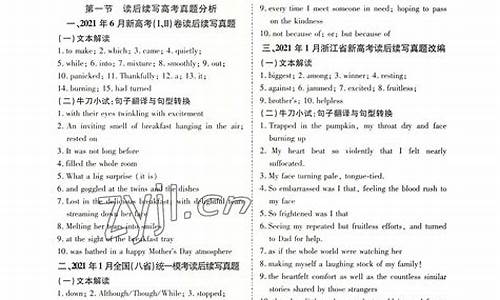 第一节 读后续写高考真题分析
一、2021 年 6 月新高考(Ⅰ,Ⅱ)卷读后续写真题
(一)文本解读
1. to make; 2. which; 3. came; 4. quietly;
5. while; 6. into; 7. mixture; 8. smoothly; 9. out;
10. panicked; 11. Thankfully; 12. a; 13. it;
14. burning; 15. had turned
(二)牛刀小试:句子翻译与句型转换
1. with their eyes twinkling with excitement
2. An inviting smell of breakfast hanging in the air;
rested on
3. It was not long before
4. filled the whole room
5. What a big surprise (it is)
6. and goggled at the twins and the dishes
8. Melting her tears into smiles
9. at the sight of the breakfast tray
10. was bathed in a happy Mother's Day atmosphere
二、2021 年 1 月全国(八省)统一模考读后续写真题
(一)文本解读
1. down; 2. Although/Though/While; 3. stopped;
9. every time I meet someone in need; hoping to pass
on the kindness
10. not because of; or; but because of
三、2021 年 1 月浙江省新高考读后续写真题改编
(一)文本解读
1. biggest; 2. among; 3. winner; 4. resting;
5. against; 6. jammed; 7. excited; 8. fruitless;
9. brother's; 10. helpless
(二)牛刀小试:句子翻译与句型转换
1. Trapped in the pumpkin, my throat dry and face
burning up
2. My heart beat so violently that I felt nearly
suffocated.
3. My face turning pale, tongue-tied.
4. So embarrassed was I that, feeling the blood rush to
my face
5. So frightened was I that
6. Seeing my repeated but fruitless efforts, and turned
to Dad for help.
8. as if the whole world were watching her
9. making myself a laughing stock of my family!
10. the heartfelt comfort as well as the countless similar
stories shared by those strangers